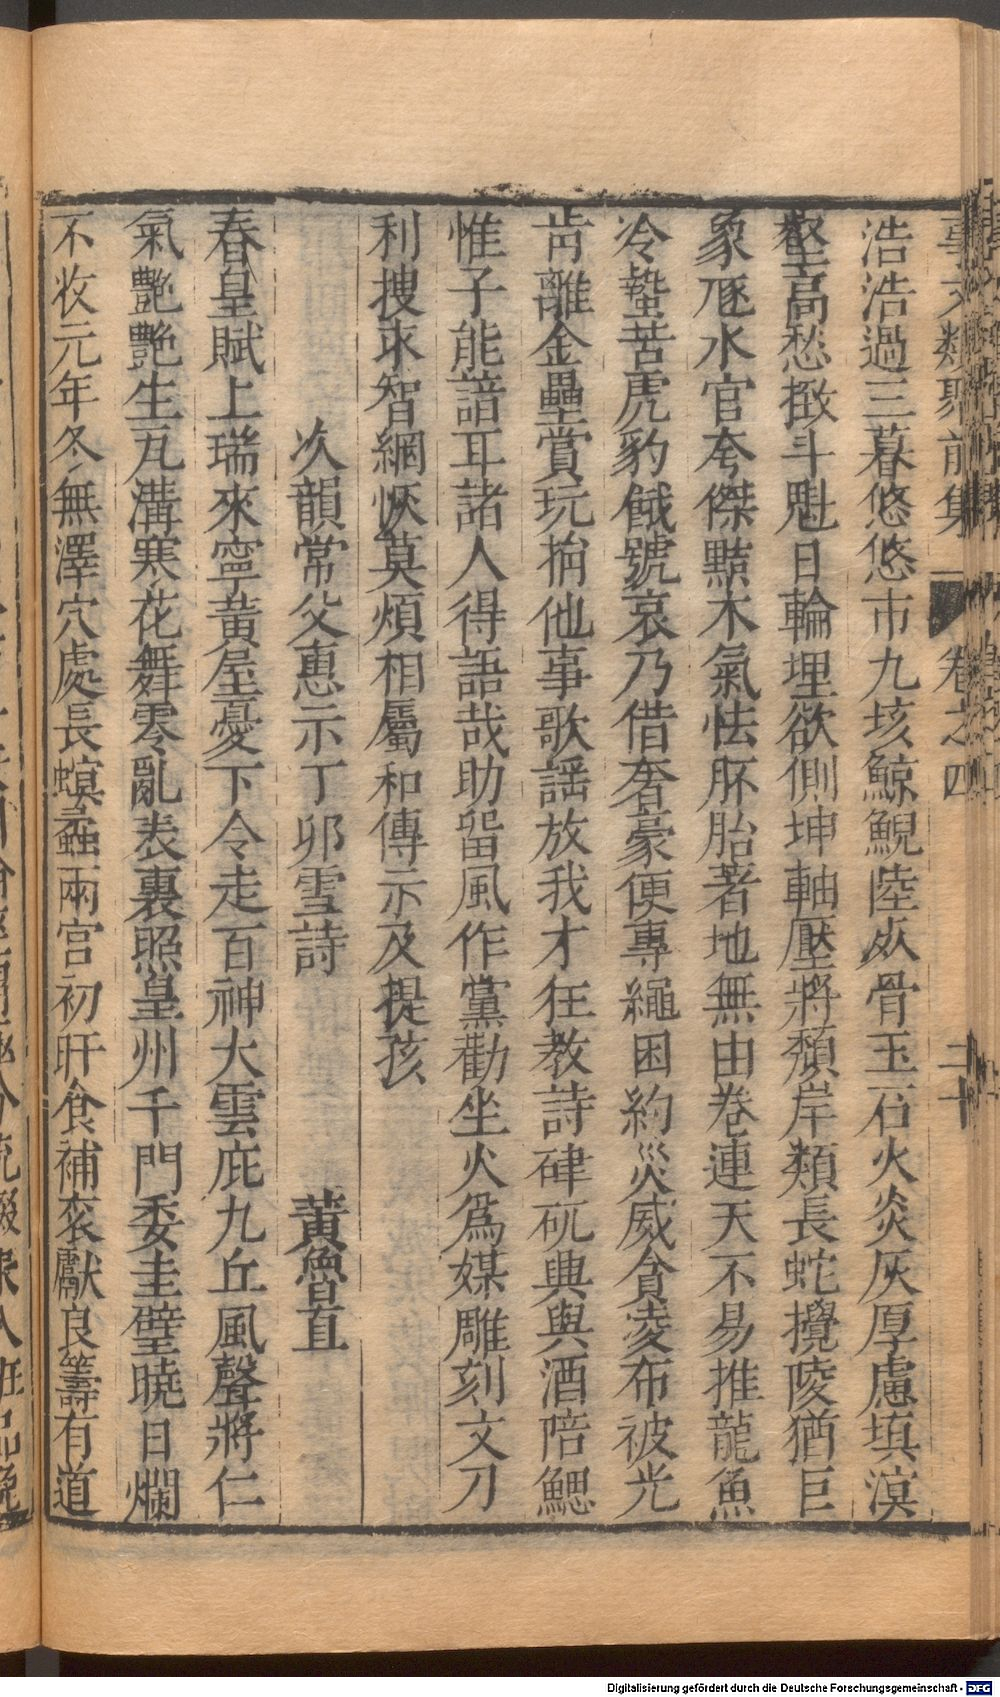 事文類聚前集 卷之四 二十
浩浩過三暮悠悠市九垓鯨鯢陸死骨玉石火炎灰厚慮填溟
壑高愁㨖斗魁日輪埋欲側坤軸壓將頽岸類長蛇攪陵猶巨
象豗水官夸傑黠木氣怯胚胎著地無由卷連天不易推龍魚
冷蟄苦虎豹餓號哀乃借奢豪便專繩困約災威貪凌布被光
肯離金罍賞玩捐他事歌謡放我才狂教詩硉矹興與酒陪鰓
惟子能諳耳諸人得語哉助留風作黨勸坐火爲媒雕刻文刀
利搜求智網恢莫煩相屬和傳示及提孩
次韻常父惠示丁卯雪詩 黄魯直
春皇賦上瑞來寧黄屋憂下令走百神大雲庇九丘風聲將仁
氣艷艷生瓦溝寒花舞零亂表裏照皇州千門委圭璧曉日爛
不收元年冬無澤穴處長螟蟊兩宫初旰食補衮獻良籌有道
Digitalisierung gefördert durch die Deutsche Forschungsgemeinschaft - DFG